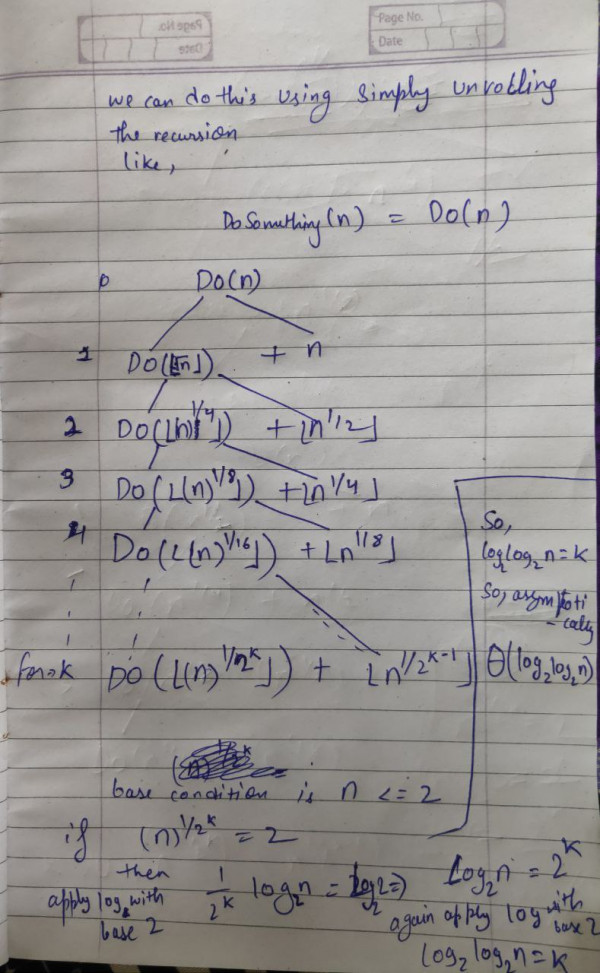 Page No.
Date
Page No.
Date
we can do this using simply unrolling
the recursion
like,
DoSomething(n) = Do(n)
0 Do(n)
1 Do(⌊√n⌋) + n
2 Do(⌊(n)^1/4⌋) + ⌊n^1/2⌋
3 Do(⌊(n)^1/8⌋) + ⌊n^1/4⌋
4 Do(⌊(n)^1/16⌋) + ⌊n^1/8⌋
for k Do(⌊(n)^1/2^k⌋) + ⌊n^1/2^k-1⌋
So,
log₂log₂n = k
So, asymptoti
-cally
θ(log₂log₂n)
base condition is n <= 2
if (n)^1/2^k = 2
then
apply log with
base 2
1/2^k log₂n = log₂2 ⇒ log₂n = 2^k
again apply log with
base 2
log₂log₂n = k